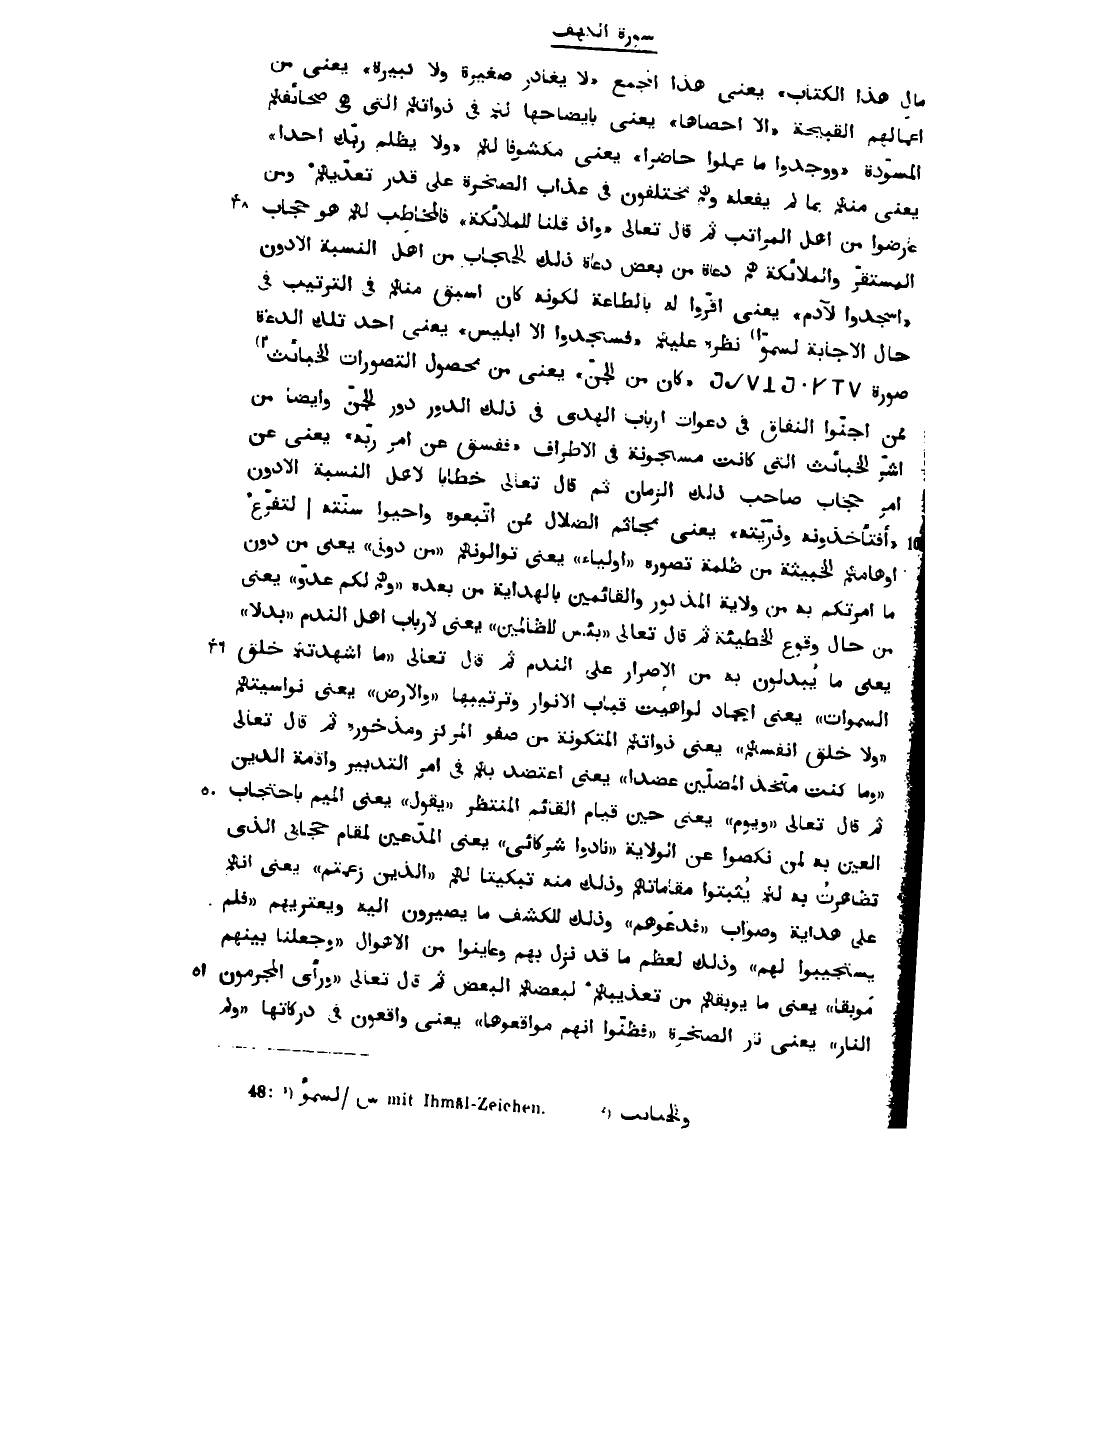 سورة الكهف
مال هذا الكتاب» يعنى هذا الجمع «لا يغادر صغيرة ولا كبيرة» يعنى من
اعمالهم القبيحة «الا احصاها» يعنى بايضاحها لهم فى ذواتهم التى هى صحائفهم
المسوّدة «ووجدوا ما عملوا حاضرا» يعنى مكشوفا لهم «ولا يظلم ربّك احدا»
يعنى منهم بما لم يفعله وهم مختلفون فى عذاب الصخرة على قدر تعذّيهم ومن
عُرضوا من اهل المراتب ثم قال تعالى «واذ قلنا للملائكة» فالمخاطب لهم هو حجاب ۴۸
المستقرّ والملائكة هم دعاة من بعض دعاة ذلك الحجاب من اهل النسبة الادون
«اسجدوا لآدم» يعنى اقرّوا له بالطاعة لكونه كان اسبق منهم فى الترتيب فى
حال الاجابة لسموّ¹⁾ نظره عليهم «فسجدوا الا ابليس» يعنى احد تلك الدعاة
صورة «كان من الجنّ» يعنى من محصول التصورات الخبائث²⁾
ممن اجنّوا النفاق فى دعوات ارباب الهدى فى ذلك الدور دور الجنّ وايضا من
اشرّ الخبائث التى كانت مسجونة فى الاطراف «ففسق عن امر ربّه» يعنى عن
امر حجاب صاحب ذلك الزمان ثم قال تعالى خطابا لاهل النسبة الادون
«أفتتأخذونه وذرّيّته» يعنى مجاثم الضلال ممن اتّبعوه واحيوا سنّته | لتفرّع 10
اوهامهم الخبيثة من ظلمة تصوره «اولياء» يعنى توالونهم «من دونى» يعنى من دون
ما امرتكم به من ولاية المذكور والقائمين بالهداية من بعده «وهم لكم عدوّ» يعنى
من حال وقوع الخطيئة ثم قال تعالى «بئس للظالمين» يعنى لارباب اهل الندم «بدلا»
يعنى ما يُبدلون به من الإصرار على الندم ثم قال تعالى «ما اشهدتهم خلق ۴۹
السموات» يعنى ايجاد لواهيت قباب الانوار وترتيبها «والارض» يعنى نواسيتهم
«ولا خلق انفسهم» يعنى ذواتهم المتكونة من صفو المركز ومذخوره ثم قال تعالى
«وما كنت متّخذ المضلّين عضدا» يعنى اعتضد بهم فى امر التدبير واقامة الدين
ثم قال تعالى «ويوم» يعنى حين قيام القائم المنتظر «يقول» يعنى الميم باحتجاب ۵۰
العين به لمن نكصوا عن الولاية «نادوا شركائى» يعنى المدّعين لمقام حجابى الذى
تظاهرتُ به لهم يُثبتوا مقاماتهم وذلك منه تبكيتا لهم «الذين زعمتم» يعنى انهم
على هداية وصواب «فدعَوهم» وذلك للكشف ما يصيرون اليه ويعتريهم «فلم
يستجيبوا لهم» وذلك لعظم ما قد نزل بهم وعاينوا من الاهوال «وجعلنا بينهم
مَوبقا» يعنى ما يوبقهم من تعذيبهم لبعضهم البعض ثم قال تعالى «ورأى المجرمون ۵۱
النار» يعنى نار الصخرة «فظنّوا انهم مواقعوها» يعنى واقعون فى دركاتها «ولم
48: ¹⁾ لسموّ / س mit Ihmāl-Zeichen. ²⁾ والخبائث